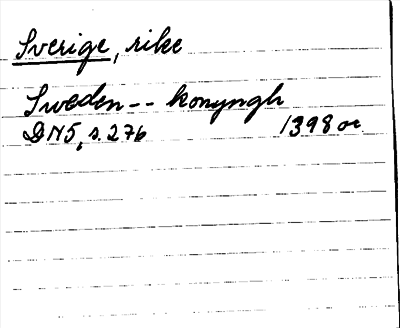 Sverige, rike
Sweden -- konyngh
DN5, s. 276 1398 or.